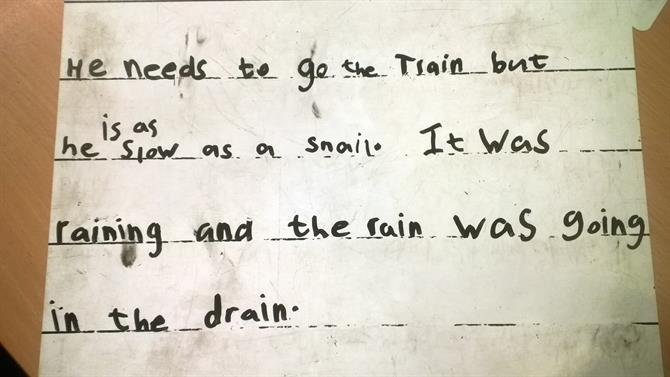 He needs to go the Train but
he is as slow as a snail. It was
raining and the rain was going
in the drain.